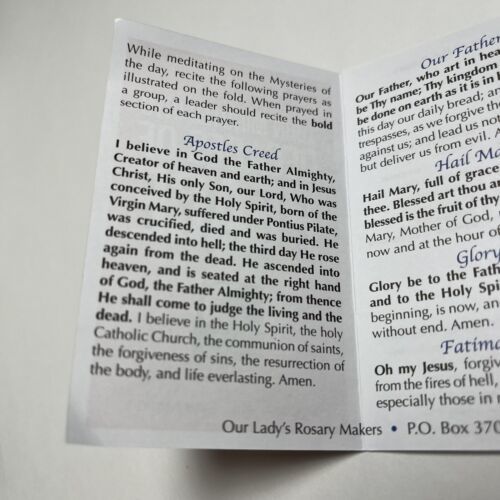 While meditating on the Mysteries of
the day, recite the following prayers as
illustrated on the fold. When prayed in
a group, a leader should recite the bold
section of each prayer.
Apostles Creed
I believe in God the Father Almighty,
Creator of heaven and earth; and in Jesus
Christ, His only Son, our Lord, Who was
conceived by the Holy Spirit, born of the
Virgin Mary, suffered under Pontius Pilate,
was crucified, died and was buried. He
descended into hell; the third day He rose
again from the dead. He ascended into
heaven, and is seated at the right hand
of God, the Father Almighty; from thence
He shall come to judge the living and the
dead. I believe in the Holy Spirit, the holy
Catholic Church, the communion of saints,
the forgiveness of sins, the resurrection of
the body, and life everlasting. Amen.
Our Father
Our Father, who art in
be Thy name; Thy kingdom
be done on earth as it is in
this day our daily bread; an
trespasses, as we forgive
against us; and lead us not
but deliver us from evil.
Hail
Hail Mary, full of grace
thee. Blessed art thou
blessed is the fruit of thy
Mary, Mother of God,
now and at the hour of
Glory
Glory be to the
and to the Holy
beginning, is now,
without end. Amen.
Oh my Jesus,
from the fires of hell,
especially those in
Our Lady's Rosary Makers • P.O. Box 370